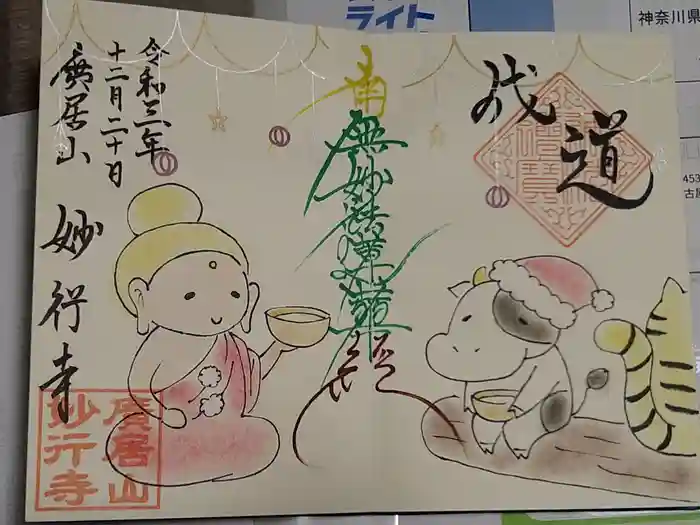 成道
南無妙法蓮華經
令和三年
十二月二十日
廣居山
妙行寺
廣居山
妙行寺
ライト
神奈川県
453